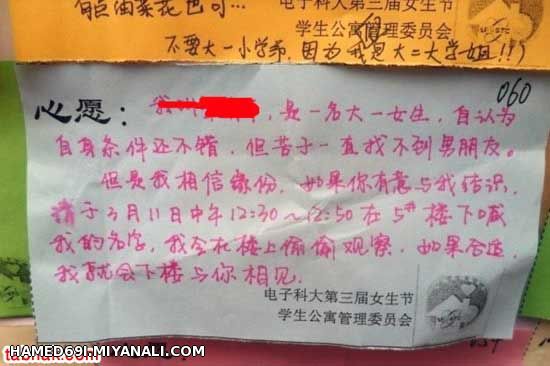 自恋油菜花也可…
电子科大第三届女生节
学生公寓管理委员会
不要大一小学弟，因为我是大二大学姐!!)
060
心愿：我叫 ，是一名大一女生，自认为
自身条件还不错，但苦于一直找不到男朋友。
但是我相信缘份，如果你有意与我结识，
请于3月11日中午12:30～12:50在5#楼下喊
我的名字，我会在楼上偷偷观察，如果合适，
我就会下楼与你相见。
电子科大第三届女生节
学生公寓管理委员会
HAMED69I.MIYANALI.COM
tabnak.com